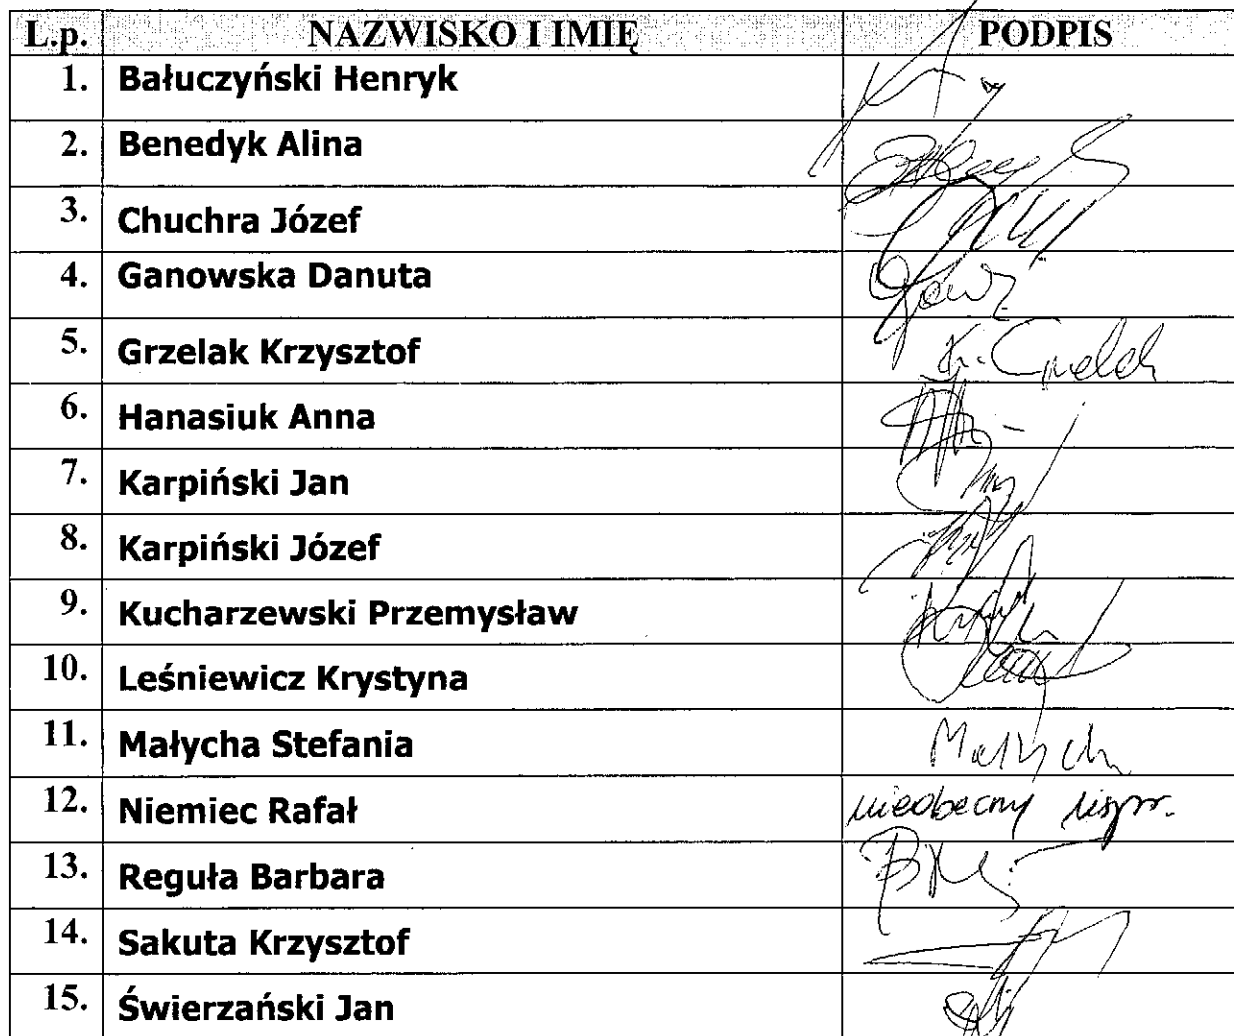 L.p. NAZWISKO I IMIĘ PODPIS
1. Bałuczyński Henryk
2. Benedyk Alina
3. Chuchra Józef
4. Ganowska Danuta
5. Grzelak Krzysztof
6. Hanasiuk Anna
7. Karpiński Jan
8. Karpiński Józef
9. Kucharzewski Przemysław
10. Leśniewicz Krystyna
11. Małycha Stefania
12. Niemiec Rafał nieobecny uspr.
13. Reguła Barbara
14. Sakuta Krzysztof
15. Świerzański Jan